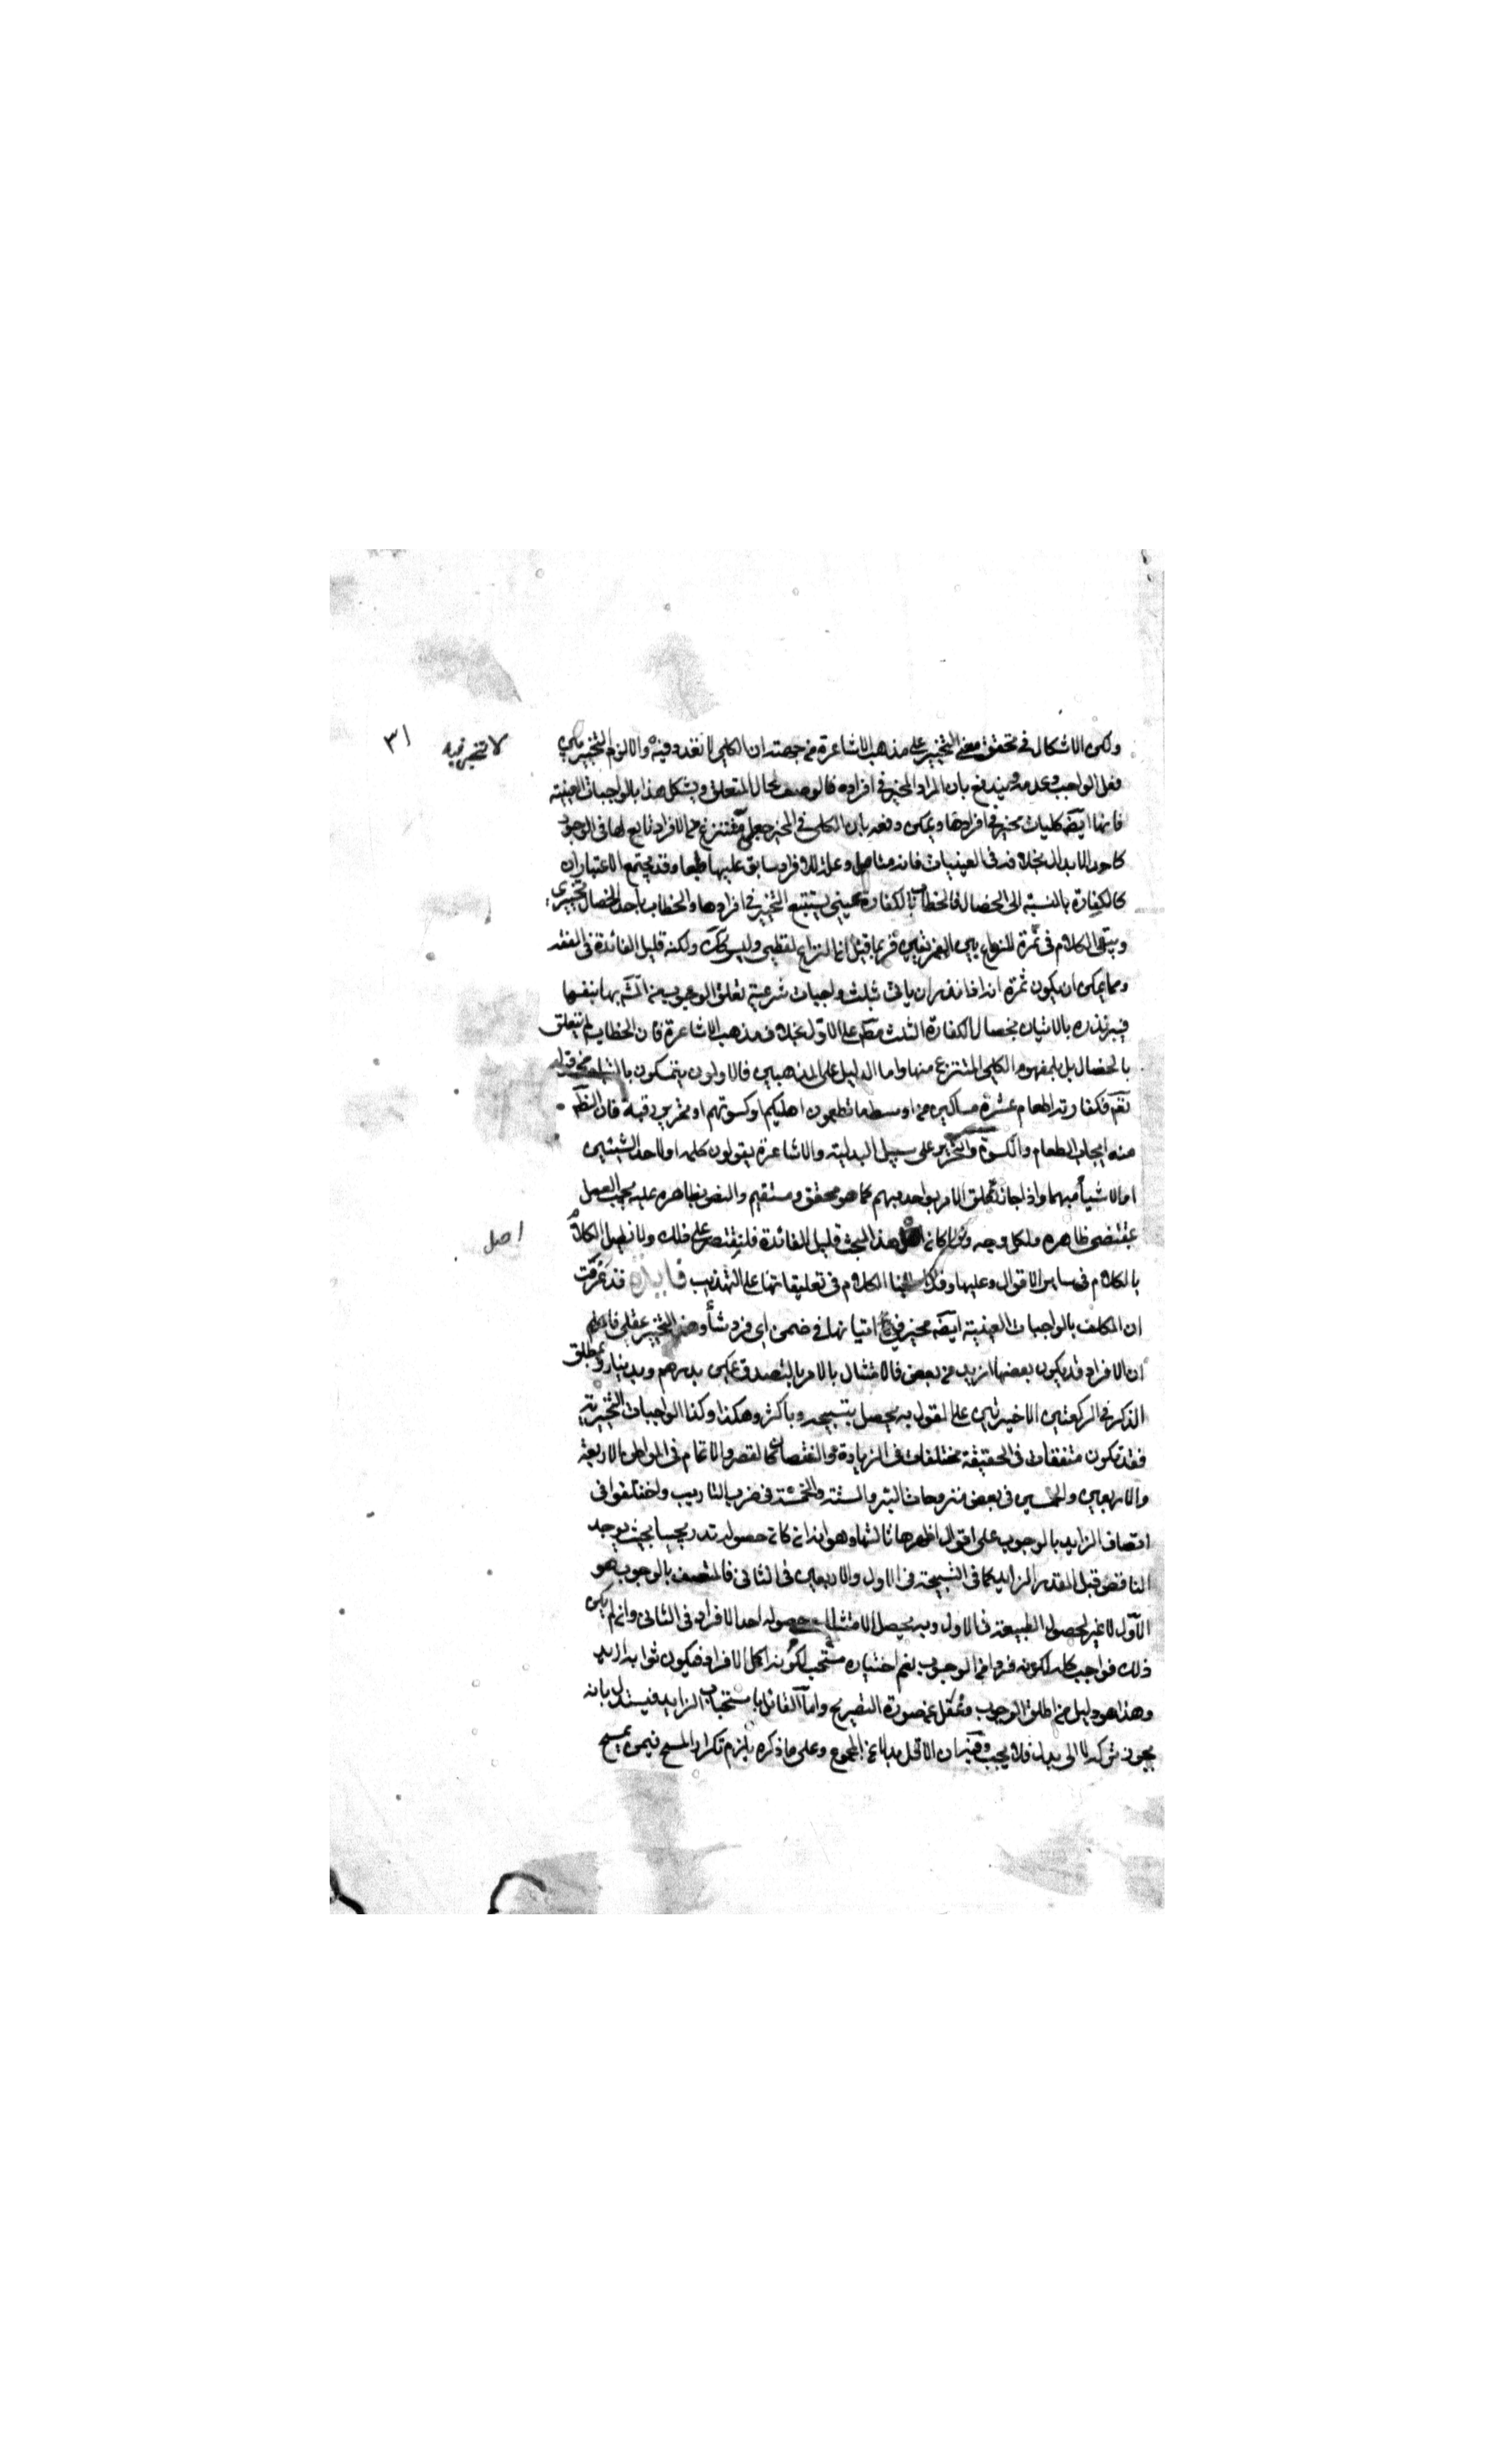 ٣١
لا تخير فيه
ولكن الاشكال في تحقق معنى التخيير على مذهب الاشاعرة من جهة ان الكلي لا تعدد فيه والا لزم التخيير بين
فعل الواجب وعدمه ويندفع بان المراد المخير في افراده فالوصف بحال المتعلق ويشكل هذا بالواجبات العينية
فانها ايضا كليات مخير في افرادها ويمكن دفعه بان الكلي في المخير جعلي منتزع من الافراد تابع لها في الوجود
كاحد الابدال بخلافه في العينيات فانه متاصل وعلة للافراد سابق عليها طبعا وقد يجتمع الاعتباران
كالكفارة بالنسبة الى الخصال فالخطاب بالكفارة عيني يستتبع التخيير في افرادها والخطاب باحد الخصال تخييري
ويبقى الكلام في ثمرة النزاع بين الفريقين فربما قيل ان النزاع لفظي وليس كك ولكنه قليل الفائدة في الفقه
ومما يمكن ان يكون ثمرة انه اذا نذر ان ياتي بثلث واجبات شرعية تعلق الوجوب من الله بها بنفسها
فيبر نذره بالاتيان بخصال الكفارة الثلث مط على الاول بخلاف مذهب الاشاعرة فان الخطاب لم يتعلق
بالخصال بل بالمفهوم الكلي المنتزع منها واما الدليل على المذهبين فالاولون يتمسكون بالتبادر من قوله
تعم فكفارته اطعام عشرة مساكين من اوسط ما تطعمون اهليكم او كسوتهم او تحرير رقبة فان الظ
منه ايجاب الطعام والكسوة والتحرير على سبيل البدلية والاشاعرة يقولون كلمة او لاحد الشيئين
او الاشياء مبهما واذا جاز تعلق الامر بواحد مبهم كما هو محقق ومستقيم والنص بظاهره عليه يجب العمل
بمقتضى ظاهره ولكل وجه ولما كان هذا البحث قليل الفائدة فلنقتصر على ذلك ولا نطيل الكلام
اصل
بالكلام في ساير الاقوال وعليها وقد الكلام في تعليقاتنا على التهذيب فايدة قد عرفت
ان المكلف بالواجبات العينية ايضا مخير في اتيانها في ضمن اي فرد شاء وهذا التخيير عقلي فاعلم
ان الافراد قد يكون بعضها ازيد من بعض فالامتثال بالامر بالتصدق يمكن بدرهم وبدينار وبمطلق
الذكر في الركعتين الاخيرتين على القول به يحصل بتسبيحة وباكثر وهكذا وكذا الواجبات التخييرية
فقد تكون متفقات في الحقيقة مختلفات في الزيادة والنقصان كالقصر والاتمام في المواطن الاربعة
والاربعين والخمسين في بعض منزوحات البئر والستة والخمسة في ضرب التاديب واختلفوا في
اتصاف الزايد بالوجوب على اقوال اظهرها ثالثها وهو انه ان كان حصوله تدريجيا بحيث يوجد
الناقص قبل القدر الزايد كما في التسبيحة في الاول والاربعين في الثاني فالمتصف بالوجوب هو
الاول لا غير لحصول الطبيعة في الاول وبه يحصل الامتثال حصول احد الافراد في الثاني وان لم يكن
ذلك فواجب كله لكونه فردا من الوجوب نعم اختياره مستحب لكونه اكمل الافراد فيكون ثوابه ازيد
وهذا هو دليل من اطلق الوجوب وغفل عن صورة التدريج واما القائل باستحباب الزايد فيستدل بانه
يجوز تركه لا الى بدل فلا يجب وفيه ان الاقل بدل عن المجموع وعلى ما ذكره يلزم تكرار المسح فيمن يمسح